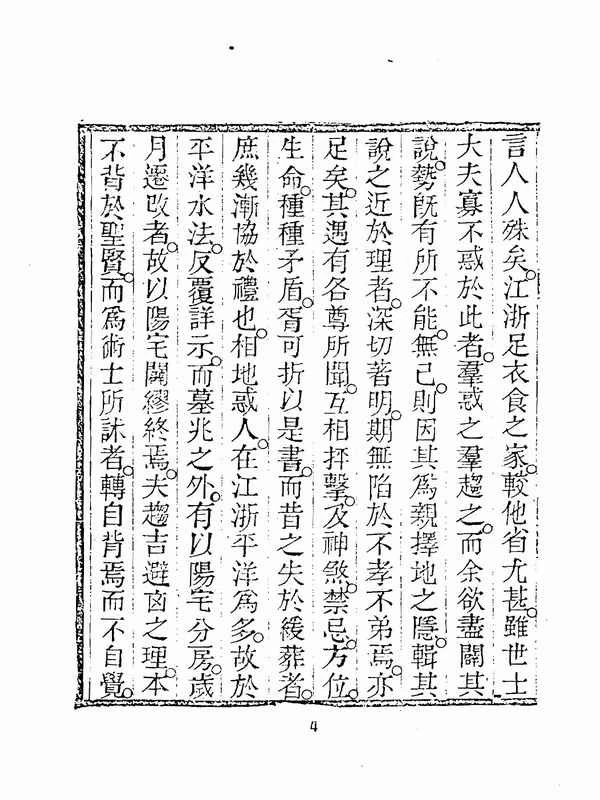 言人人殊矣。江浙足衣食之家。較他省尤甚。雖世士
大夫寡不惑於此者。羣惑之羣趨之。而余欲盡闢其
說。勢旣有所不能。無已。則因其爲親擇地之隱。輯其
說之近於理者。深切著明。期無陷於不孝不弟焉。亦
足矣。其遇有各尊所聞。互相抨擊。及神煞。禁忌。方位。
生命。種種矛盾。胥可折以是書。而昔之失於緩葬者。
庶幾漸協於禮也。相地惑人。在江浙平洋爲多。故於
平洋水法。反覆詳示。而墓兆之外。有以陽宅分房。歲
月遷改者。故以陽宅闢繆終焉。夫趨吉避凶之理。本
不背於聖賢。而爲術士所訹者。轉自背焉而不自覺。
4